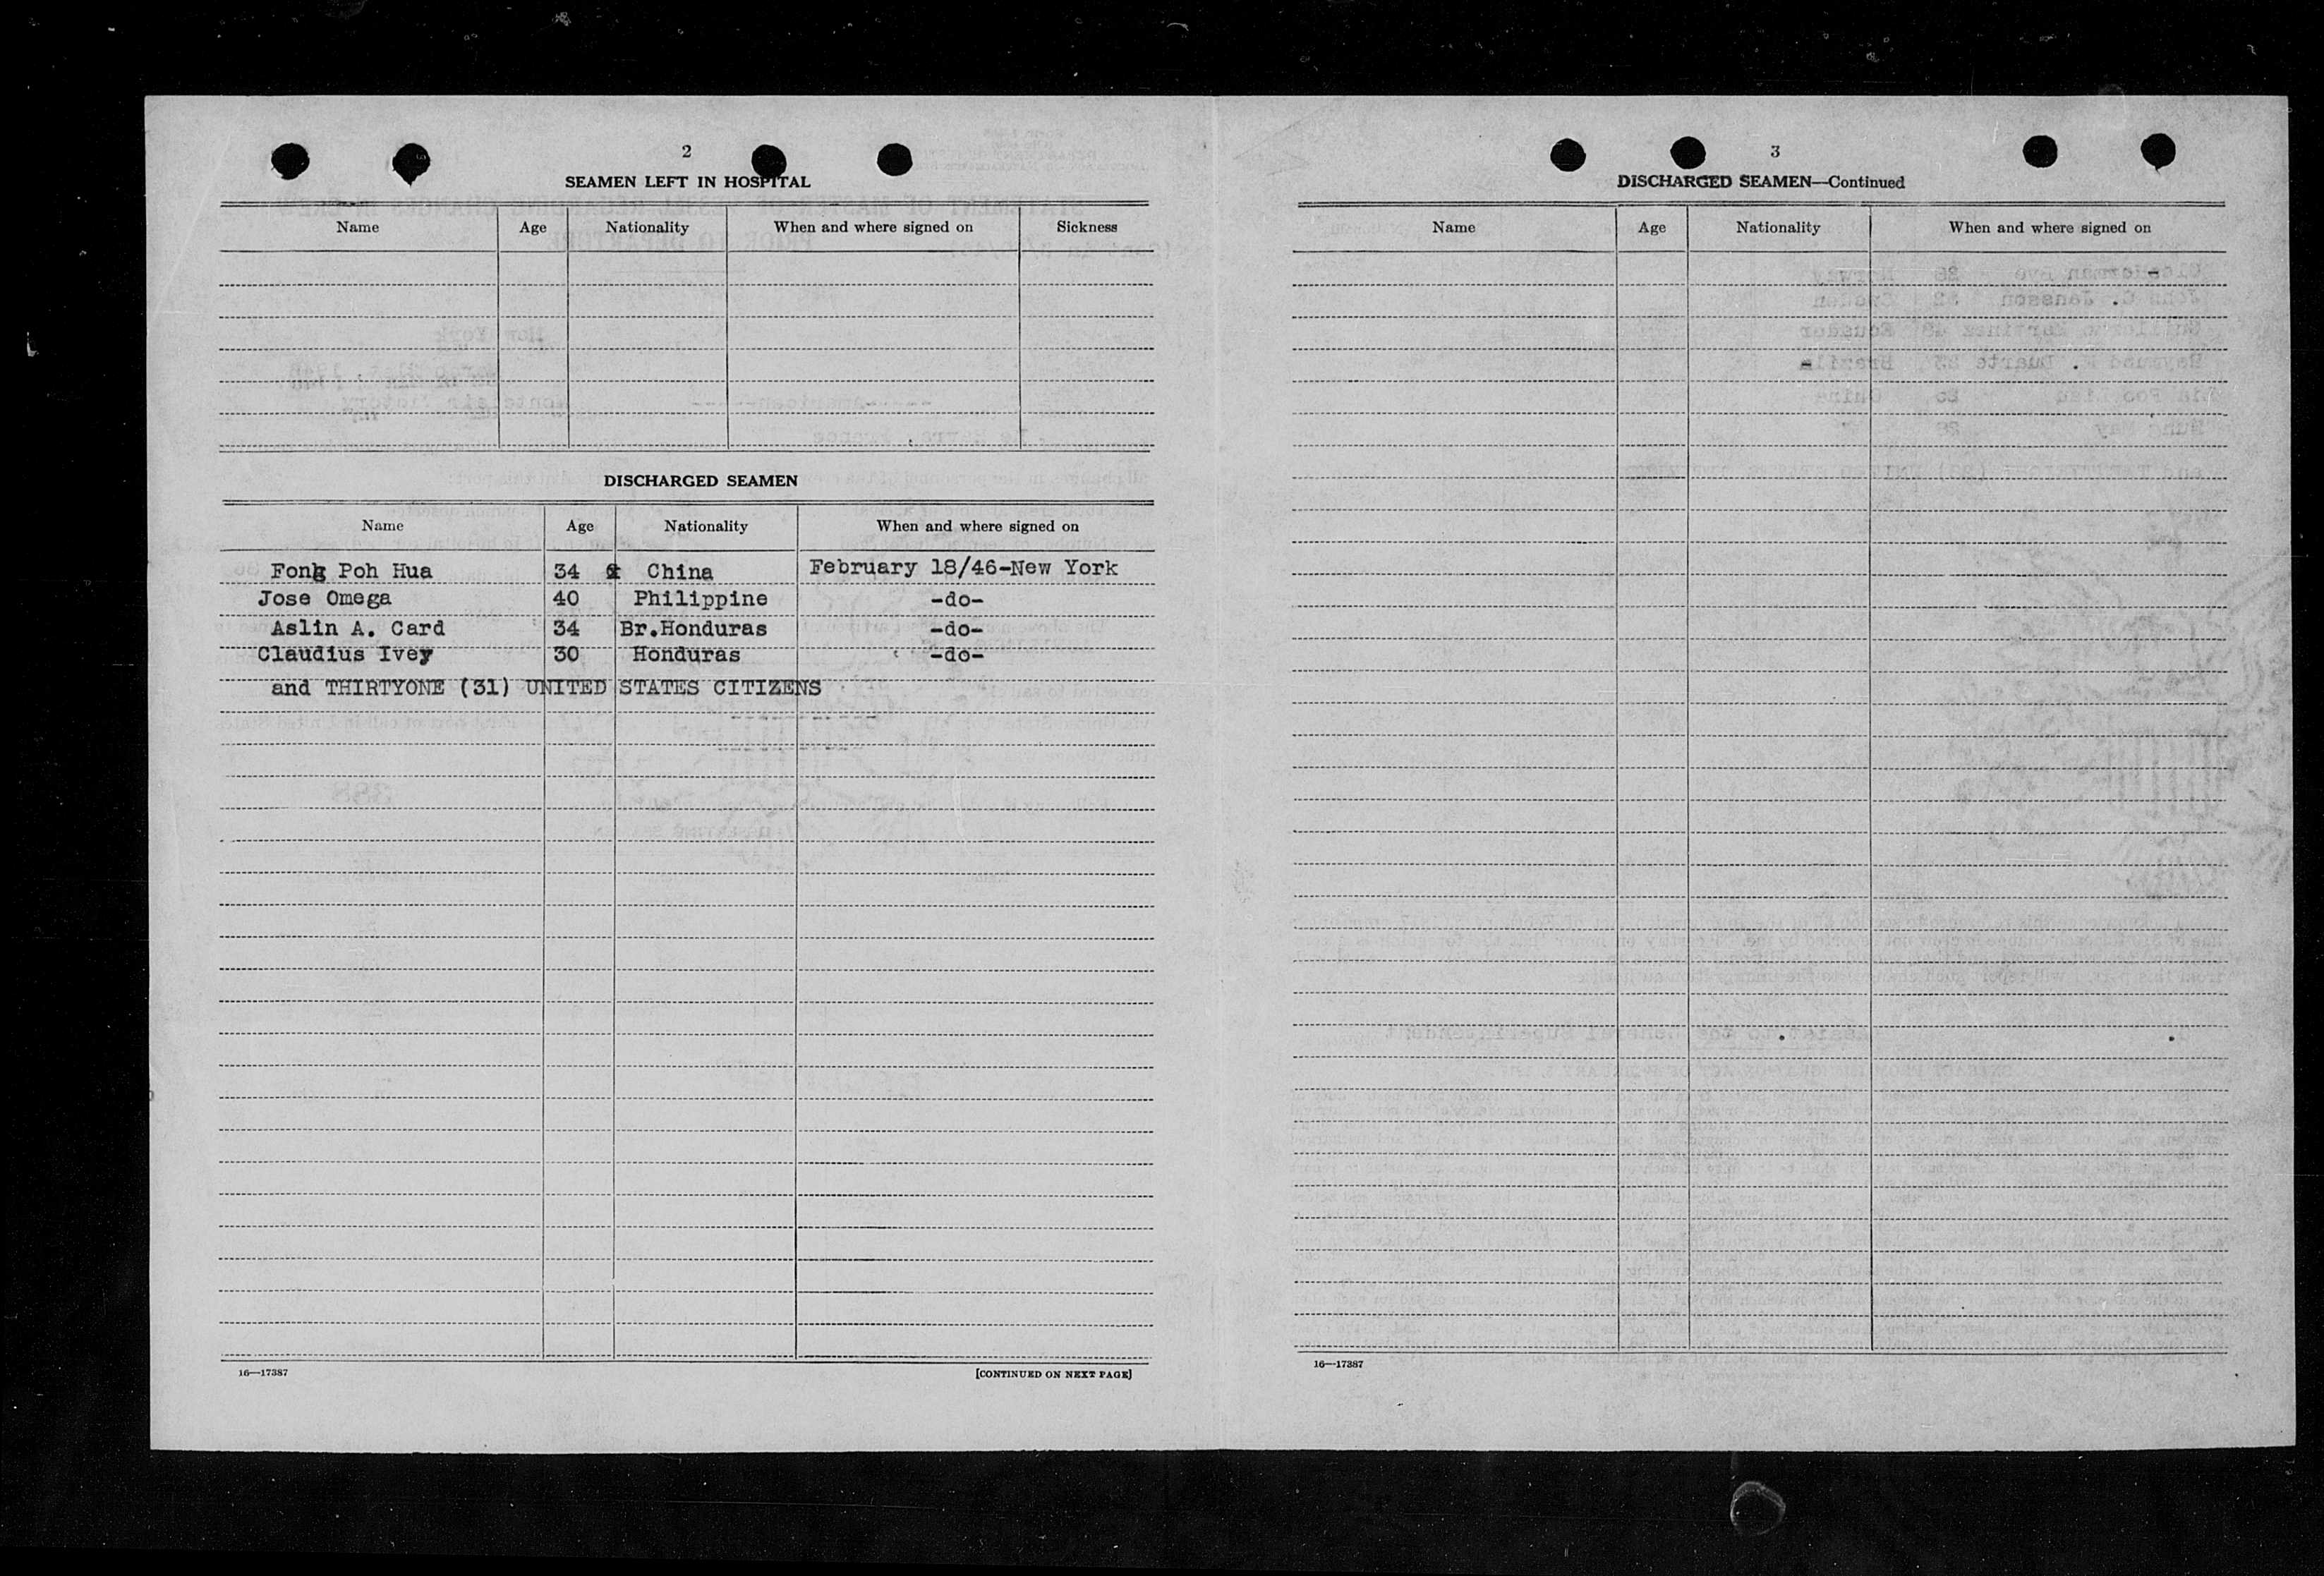 2
SEAMEN LEFT IN HOSPITAL
Name Age Nationality When and where signed on Sickness
DISCHARGED SEAMEN
Name Age Nationality When and where signed on
Fong Poh Hua 34 China February 18/46-New York
Jose Omega 40 Philippine -do-
Aslin A. Card 34 Br.Honduras -do-
Claudius Ivey 30 Honduras -do-
and THIRTYONE (31) UNITED STATES CITIZENS
16—17387 [CONTINUED ON NEXT PAGE]
3
DISCHARGED SEAMEN—Continued
Name Age Nationality When and where signed on
16—17387